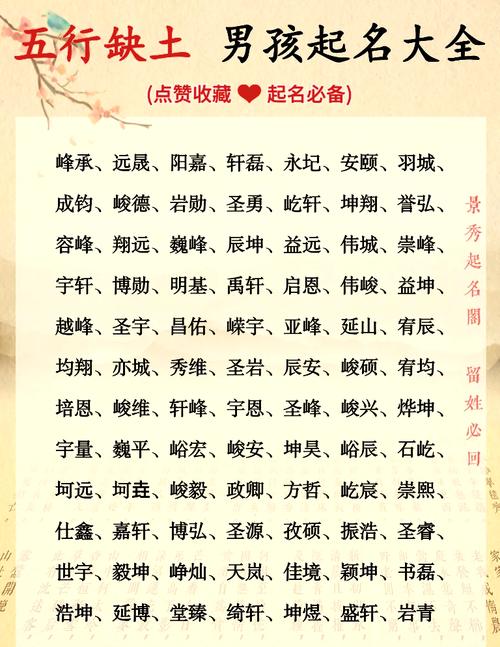 五行缺土 男孩起名大全
(点赞收藏❤起名必备)
峰承、远晟、阳嘉、轩磊、永圮、安颐、羽城、
成钧、峻德、岩勋、圣勇、屹轩、坤翔、誉弘、
容峰、翔远、巍峰、辰坤、益远、伟城、崇峰、
宇轩、博勋、明基、禹轩、启恩、伟峻、益坤、
越峰、圣宇、昌佑、嵘宇、亚峰、延山、宥辰、
均翔、亦城、秀维、圣岩、辰安、峻硕、宥均、
培恩、峻维、轩峰、宇恩、圣峰、峻兴、烨坤、
宇量、巍平、峪宏、峻安、坤昊、峪辰、石屹、
坷远、坷垚、峻毅、政卿、方哲、屹宸、崇熙、
仕鑫、嘉轩、博弘、圣源、孜硕、振浩、圣睿、
世宇、毅坤、峥灿、天岚、佳境、颖坤、书磊、
浩坤、延博、堂臻、绮轩、坤煜、盛轩、岩青
景秀起名閣
留姓必回